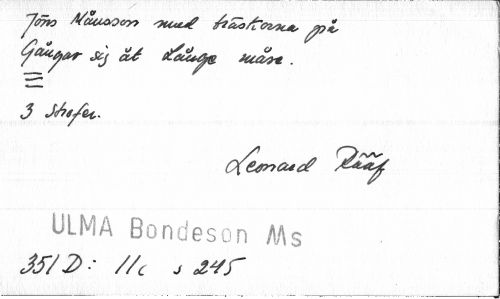 Jöns Månsson med träskorna på
Gångar sig åt Långe måse.
3 Strofer.
Leonard Rääf
ULMA Bondeson Ms
351 D: 11c s 245